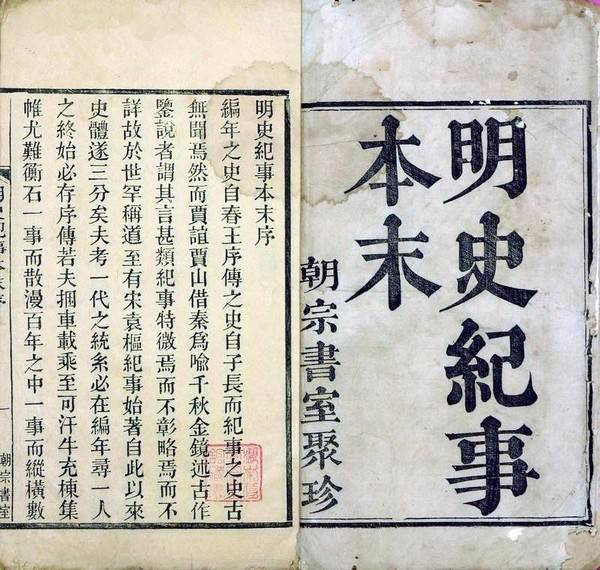 明史紀事
本末
朝宗書室聚珍
明史紀事本末序
編年之史自春王序傳之史自子長而紀事之史古
無聞焉然而賈誼賈山借秦為喻千秋金鏡述古作
鑒說者謂其言甚類紀事特微焉而不彰略焉而不
詳故於世罕稱道至有宋袁樞紀事始著自此以來
史體遂三分矣夫考一代之統系必在編年尋一人
之終始必存序傳若夫捆車載乘至可汗牛充棟集
帷尤難衡石一事而散漫百年之中一事而縱橫數
朝宗書室